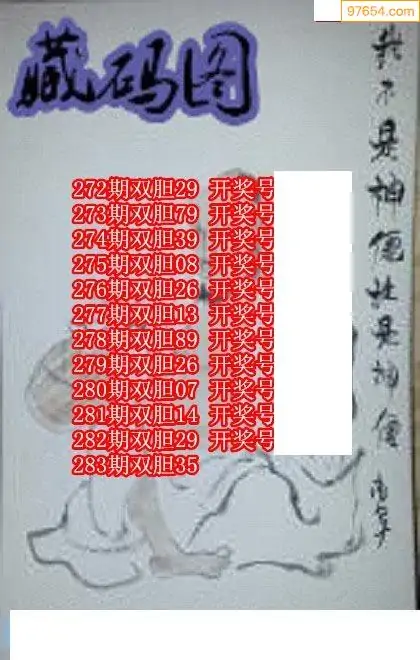 97654.com
藏码图
272期双胆29 开奖号
273期双胆79 开奖号
274期双胆39 开奖号
275期双胆08 开奖号
276期双胆26 开奖号
277期双胆13 开奖号
278期双胆89 开奖号
279期双胆26 开奖号
280期双胆07 开奖号
281期双胆14 开奖号
282期双胆29 开奖号
283期双胆35
不是神仙
是神仙